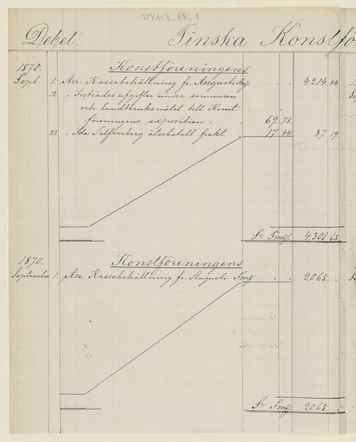 Debet. Finska Konstfö
1870. Konstföreningens
Sept. 1. An Kassabehållning fr Augusti Fmg 4214. 44
12 " Inträdes afgifter under sommaren
och landtbruksmötet till Konst
föreningens exposition. 69. 75.
23 " Ida Silfverberg återbetalt frakt 17. 44 87. 19
Sa Fmg. 4301. 63.
1870. Konstföreningens
September 1. An Kassabehållning fr Augusti Fmg. 2065.
Sa Fmg. 2065.